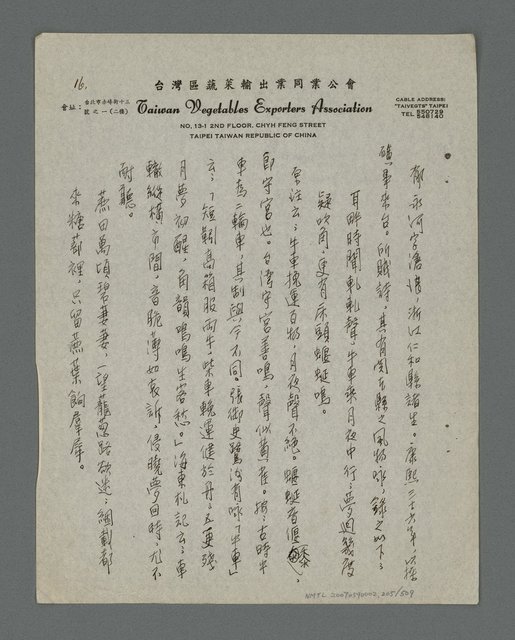 16.
台灣區蔬菜輸出業同業公會
會址：台北市赤峰街十三號之一（二樓）
Taiwan Vegetables Exporters Association
NO. 13-1 2ND FLOOR, CHYH FENG STREET
TAIPEI TAIWAN REPUBLIC OF CHINA
CABLE ADDRESS:
"TAIVEGTS" TAIPEI
TEL.
郁永河字滄浪，浙江仁和縣諸生。康熙三十六年，以採
礦事來台。所賦詩，其有關互縣之風物咏，錄之如下：
耳畔時聞軋軋聲，牛車乘月夜中行，夢迴幾度
疑吹角，更有床頭蝘蜓鳴。
原注云：牛車挽運百物，月夜聲不絕。蝘蜓音偃忝，
即守宮也。台灣守宮善鳴，聲似黃雀。按：古時牛
車為二輪車，其制與今不同。張御史鷺洲有咏「牛車」
云：「短轅高箱服兩牛，柴車輓運健於舟，五更殘
月夢初醒，角韻嗚嗚生客愁。」海東札記云：車
轍縱橫市間，音脆薄如哀訴，侵曉夢回時，尤不
耐聽。
蔗田萬頃碧萋萋，一望蘢葱路欲迷，綑載都
來糖蔀裡，只留蔗葉餉羣犀。
NMTL 20090540002, 205/509